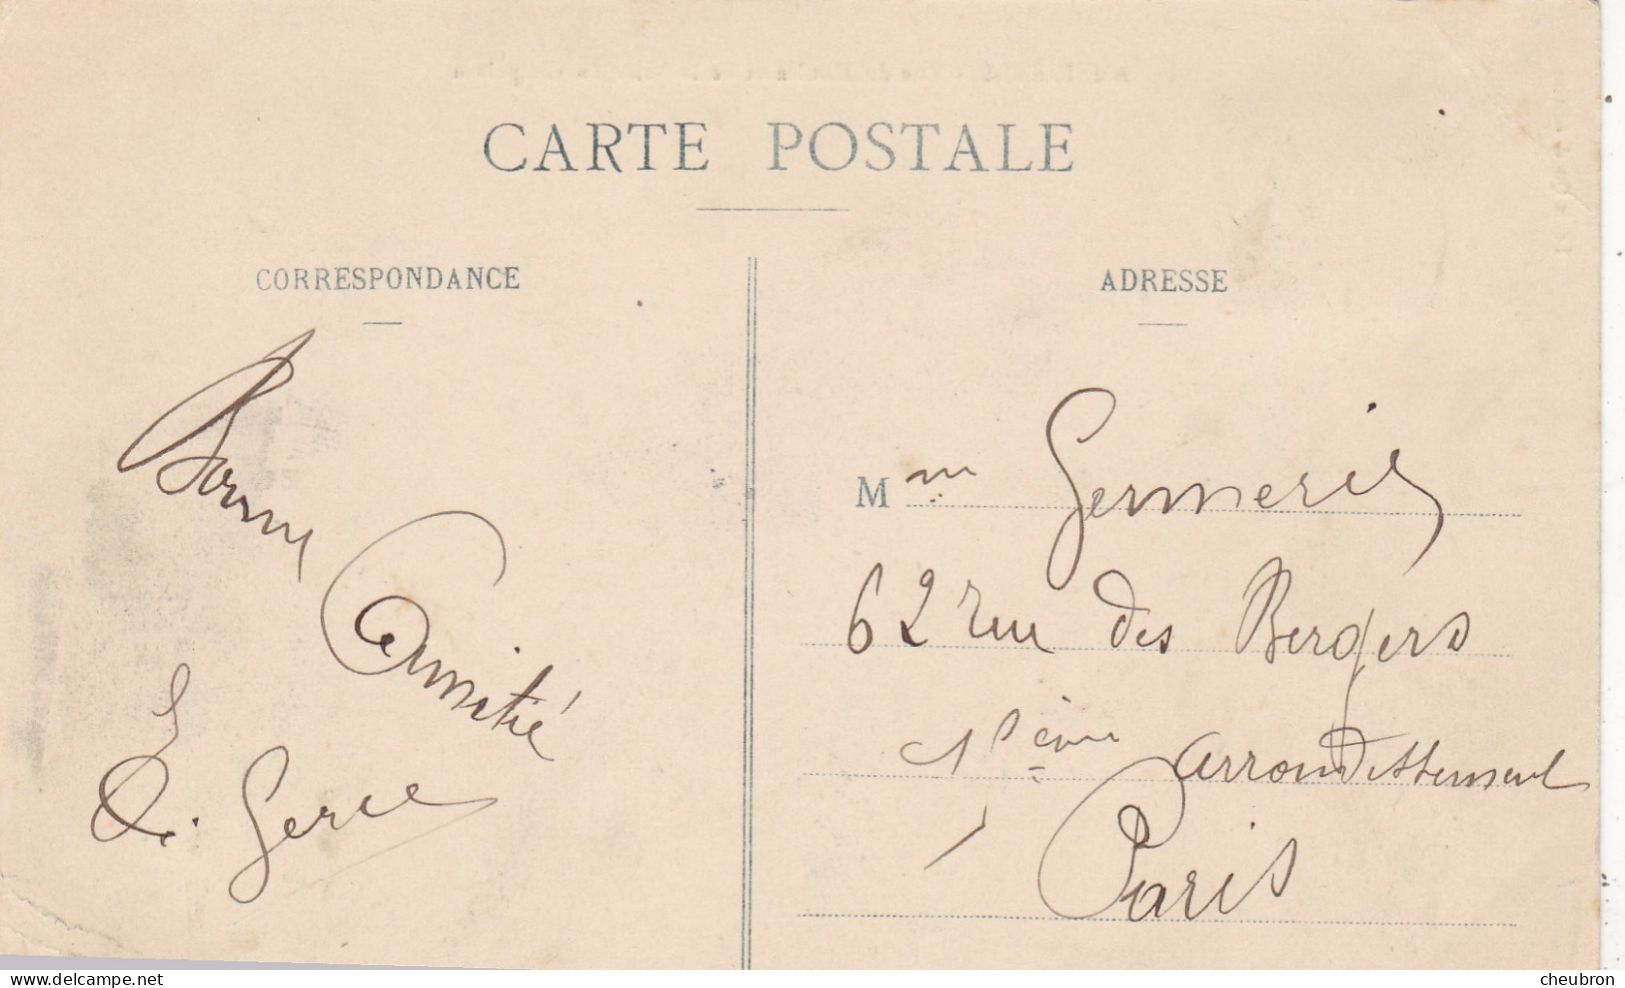 CARTE POSTALE
CORRESPONDANCE
Bonne
Amitié
ADRESSE
Mm
62 rue des Bergers
arrondissement
Paris
delcampe.net
cheubron